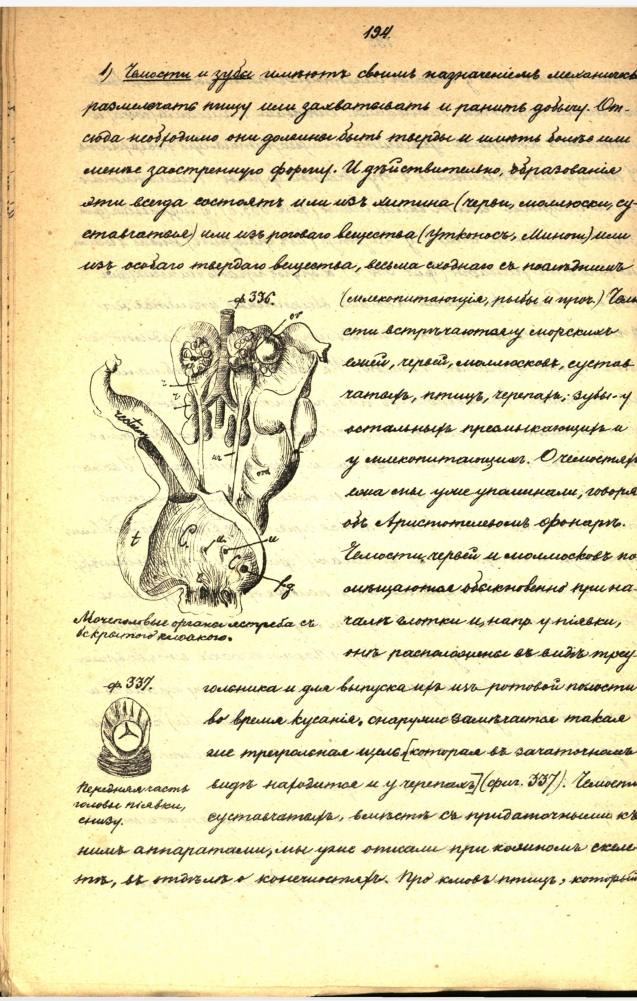 194.
1) Челюсти и зубы имѣютъ своимъ назначеніемъ механичес
размельчать пищу или захватывать и ранить добычу. От-
сюда необходимо они должны быть тверды и имѣть болѣе или
менѣе заостренную форму. И дѣйствительно, образованія
эти всегда состоятъ или изъ хитина (черви, моллюски, су-
ставчатыя) или изъ роговаго вещества (Утконосъ, Миноги) или
изъ особаго твердаго вещества, весьма сходнаго съ послѣднимъ
ф. 336.
(млекопитающія, рыбы и проч.) Челю
сти встрѣчаются у морскихъ
ежей, червей, моллюсковъ, сустав
чатыхъ, птицъ, черепахъ; зубы - у
остальныхъ пресмыкающихся и
у млекопитающихъ. О челюстяхъ
ежа мы уже упоминали, говоря
объ Аристотелевомъ фонарѣ.
Челюсти червей и моллюсковъ по
мѣщаются обыкновенно при на-
чалѣ глотки и, напр. у піявки,
онѣ расположены въ видѣ треу
rectum
or
r
r
ur
od
t
C
u
u
C
bg
Мочеполовые органы ястреба съ
вскрытой клоакою.
ф. 337.
гольника и для выпуска ихъ изъ ротовой полости
во время кусанія, снаружи замѣчается такая
же треугольная щель [которая въ зачаточномъ
видѣ находится и у черепахъ] (фиг. 337). Челюсти
суставчатыхъ, вмѣстѣ съ придаточными къ
Передняя часть
головы піявки,
снизу.
нимъ аппаратами, мы уже описали при кожномъ скеле
тѣ, въ отдѣлѣ о конечностяхъ. Про клювъ птицъ, который